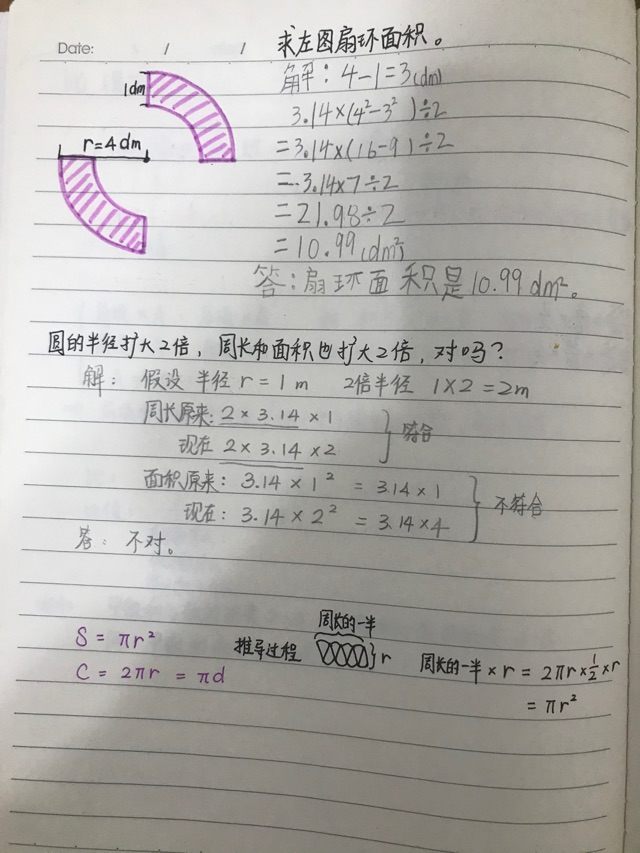 Date: / /
求左图扇环面积。
1dm
r=4dm
解：4-1=3(dm)
3.14×(4²-3²)÷2
=3.14×(16-9)÷2
=3.14×7÷2
=21.98÷2
=10.99(dm²)
答：扇环面积是10.99dm²。
圆的半径扩大2倍，周长和面积也扩大2倍，对吗？
解： 假设 半径 r=1m 2倍半径 1×2=2m
周长原来：2×3.14×1
现在 2×3.14×2
符合
面积原来：3.14×1²=3.14×1
现在：3.14×2²=3.14×4
不符合
答：不对。
S=πr²
C=2πr=πd
推导过程
周长的一半
r
周长的一半×r=2πr×½×r
=πr²